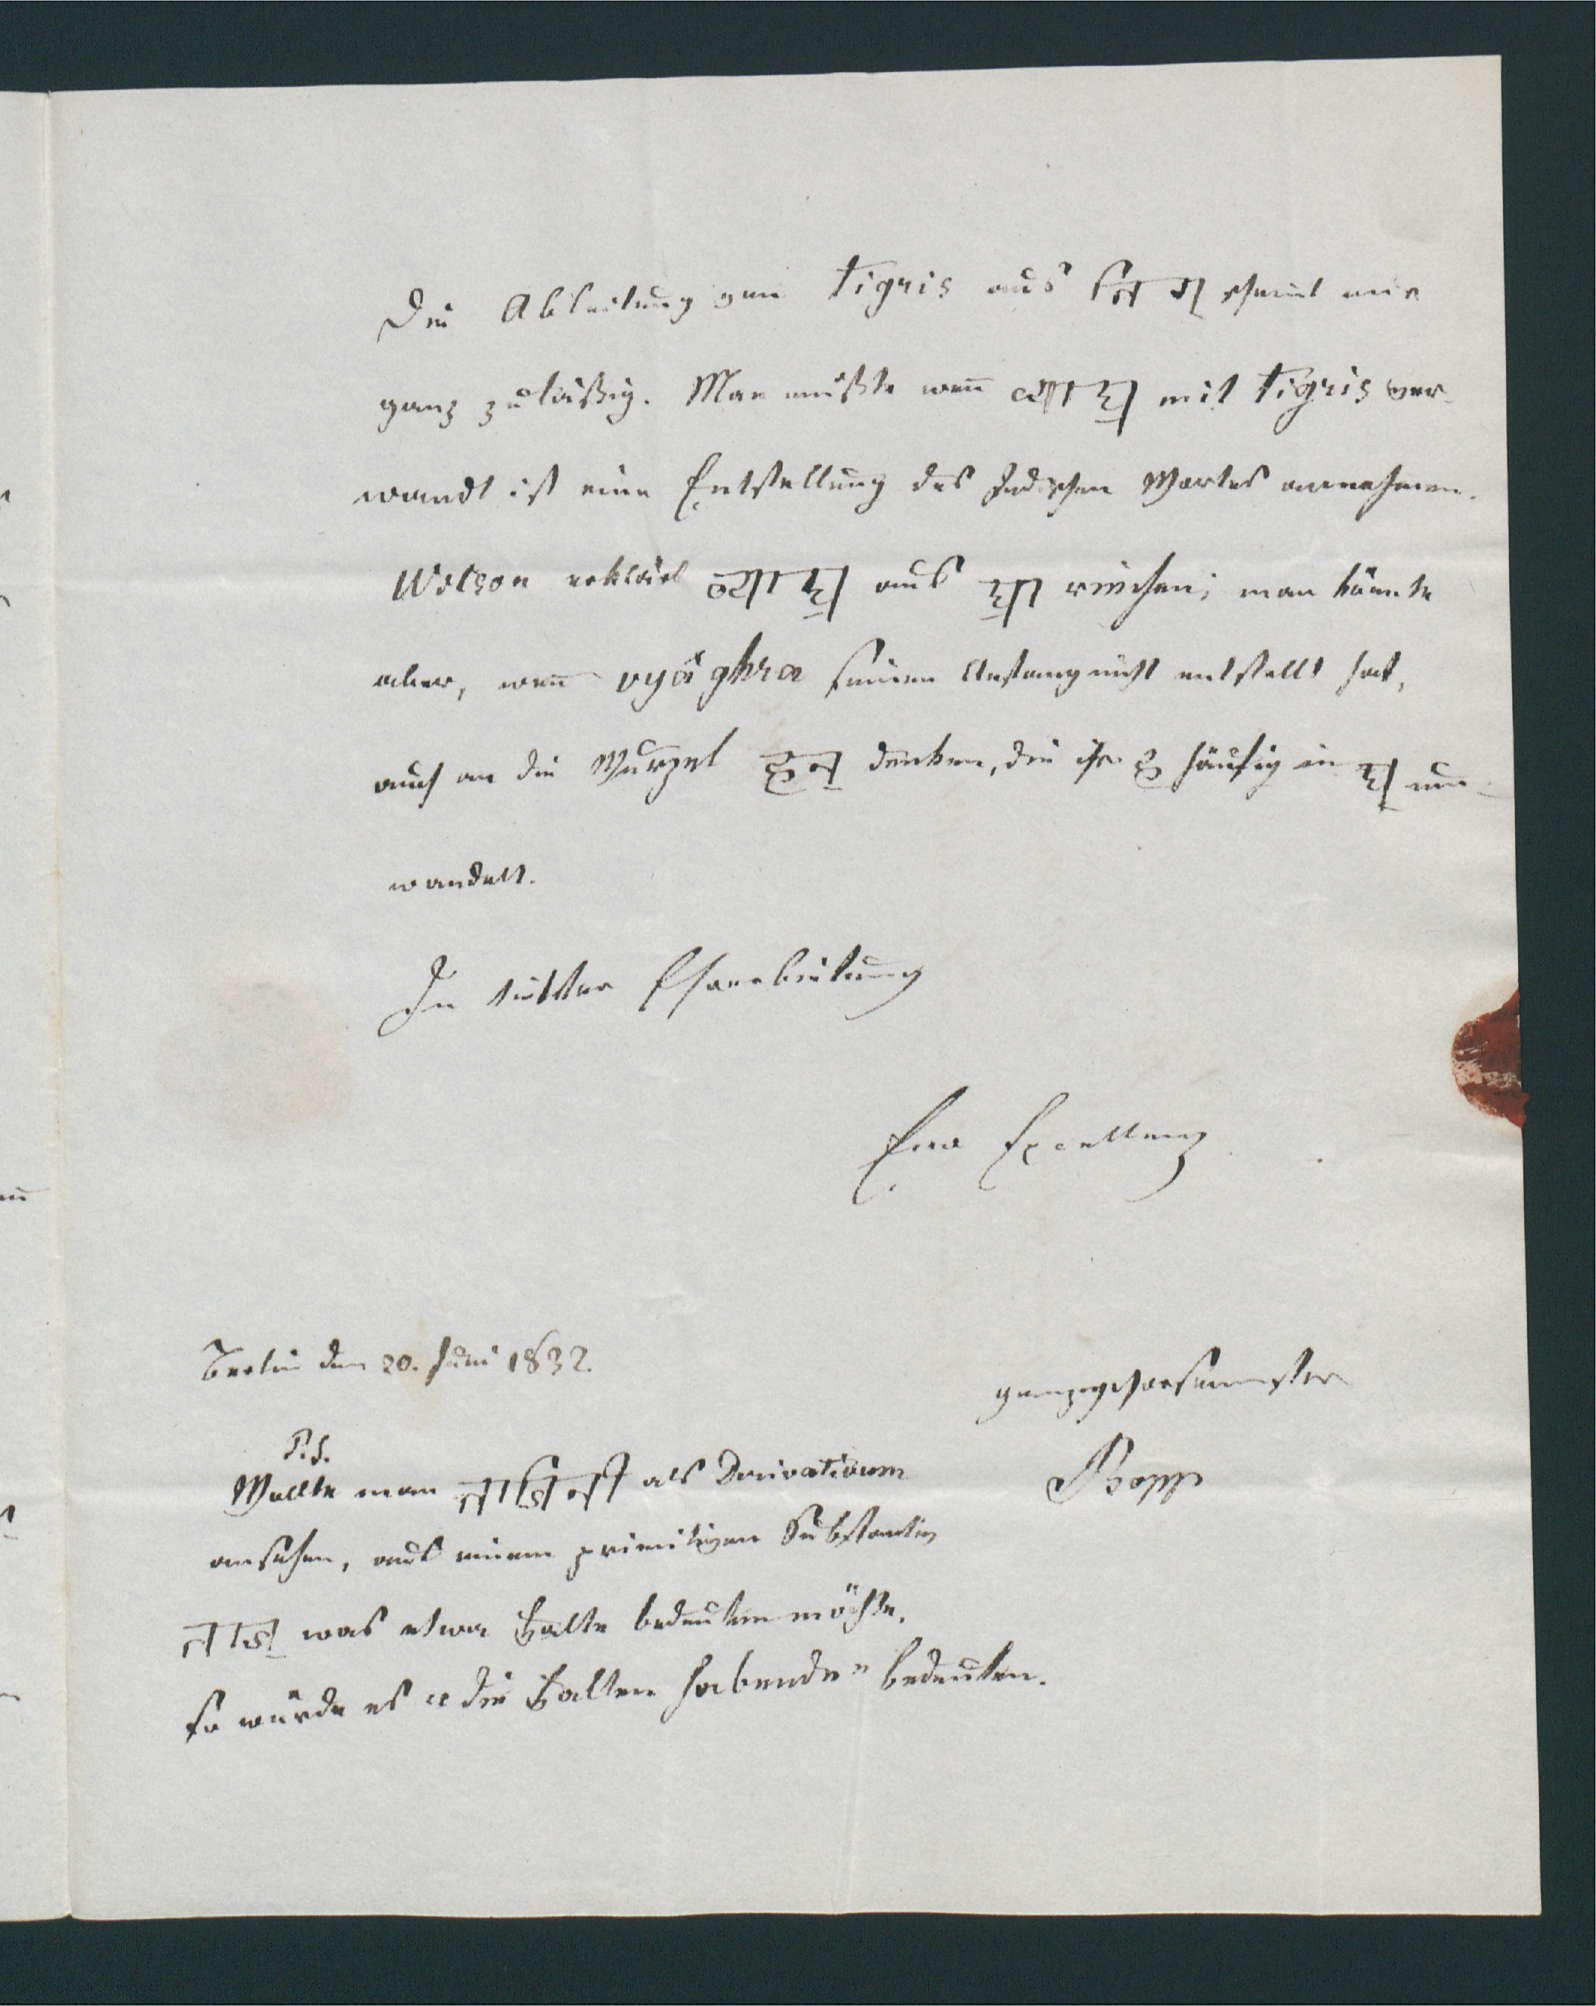 Die Ableitung von tigris aus तिज् scheint mir
ganz zuläßig. Man müßte wenn व्याघ्र mit tigris ver-
wandt ist eine Entstellung des Indischen Wortes annehmen.
Wilson erklärt व्याघ्र aus घ्रा riechen; man könnte
aber, wenn vyâghra seinen Anfang nicht entstellt hat,
auch an die Wurzel हन् denken, die ihr ह häufig in घ् um-
wandelt.
In tiefster Ehrerbietung
Eurer Excellenz
Berlin den 20. Juni 1832.
ganzgehorsamster
Bopp
P.S.
Wollte man als Derivativum
ansehen, aus einem primitiven Substantiv
was etwa Falte bedeuten möchte,
so würde es „die Falten habende" bedeuten.